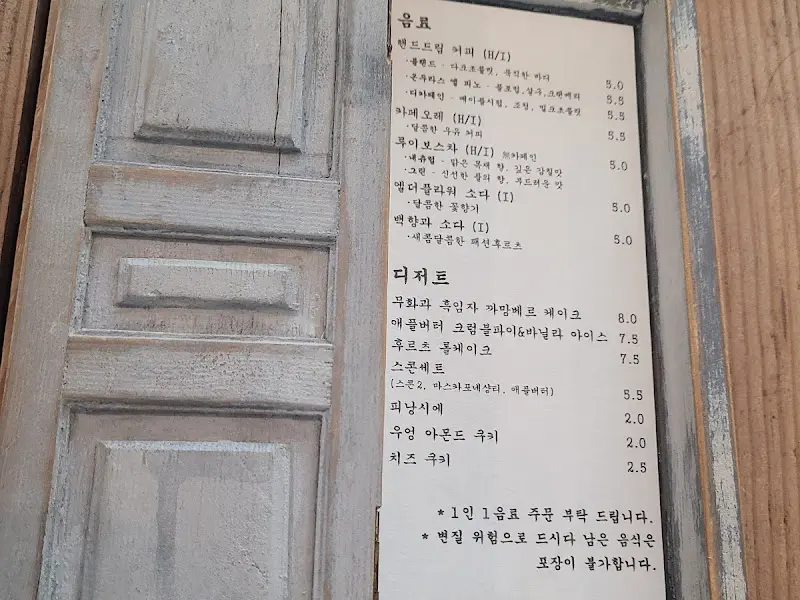 음료
핸드드립 커피 (H/I)
·블랜드 - 다크초콜릿, 묵직한 바디 5.0
·온두라스 엘 피노 - 플로럴,살구,크랜베리 5.5
·디카페인 - 메이플시럽, 조청, 밀크초콜릿 5.5
카페오레 (H/I) 5.5
·달콤한 우유 커피
루이보스차 (H/I) 無카페인 5.0
·내츄럴 - 맑은 목새 향, 깊은 감칠맛
·그린 - 신선한 풀의 향, 부드러운 맛
엘더플라워 소다 (I) 5.0
·달콤한 꽃향기
백향과 소다 (I) 5.0
·새콤달콤한 패션후르츠
디저트
무화과 흑임자 까망베르 케이크 8.0
애플버터 크럼블파이&바닐라 아이스 7.5
후르츠 롤케이크 7.5
스콘세트
(스콘2, 마스카포네샹티, 애플버터) 5.5
피낭시에 2.0
우엉 아몬드 쿠키 2.0
치즈 쿠키 2.5
* 1인 1음료 주문 부탁 드립니다.
* 변질 위험으로 드시다 남은 음식은
포장이 불가합니다.